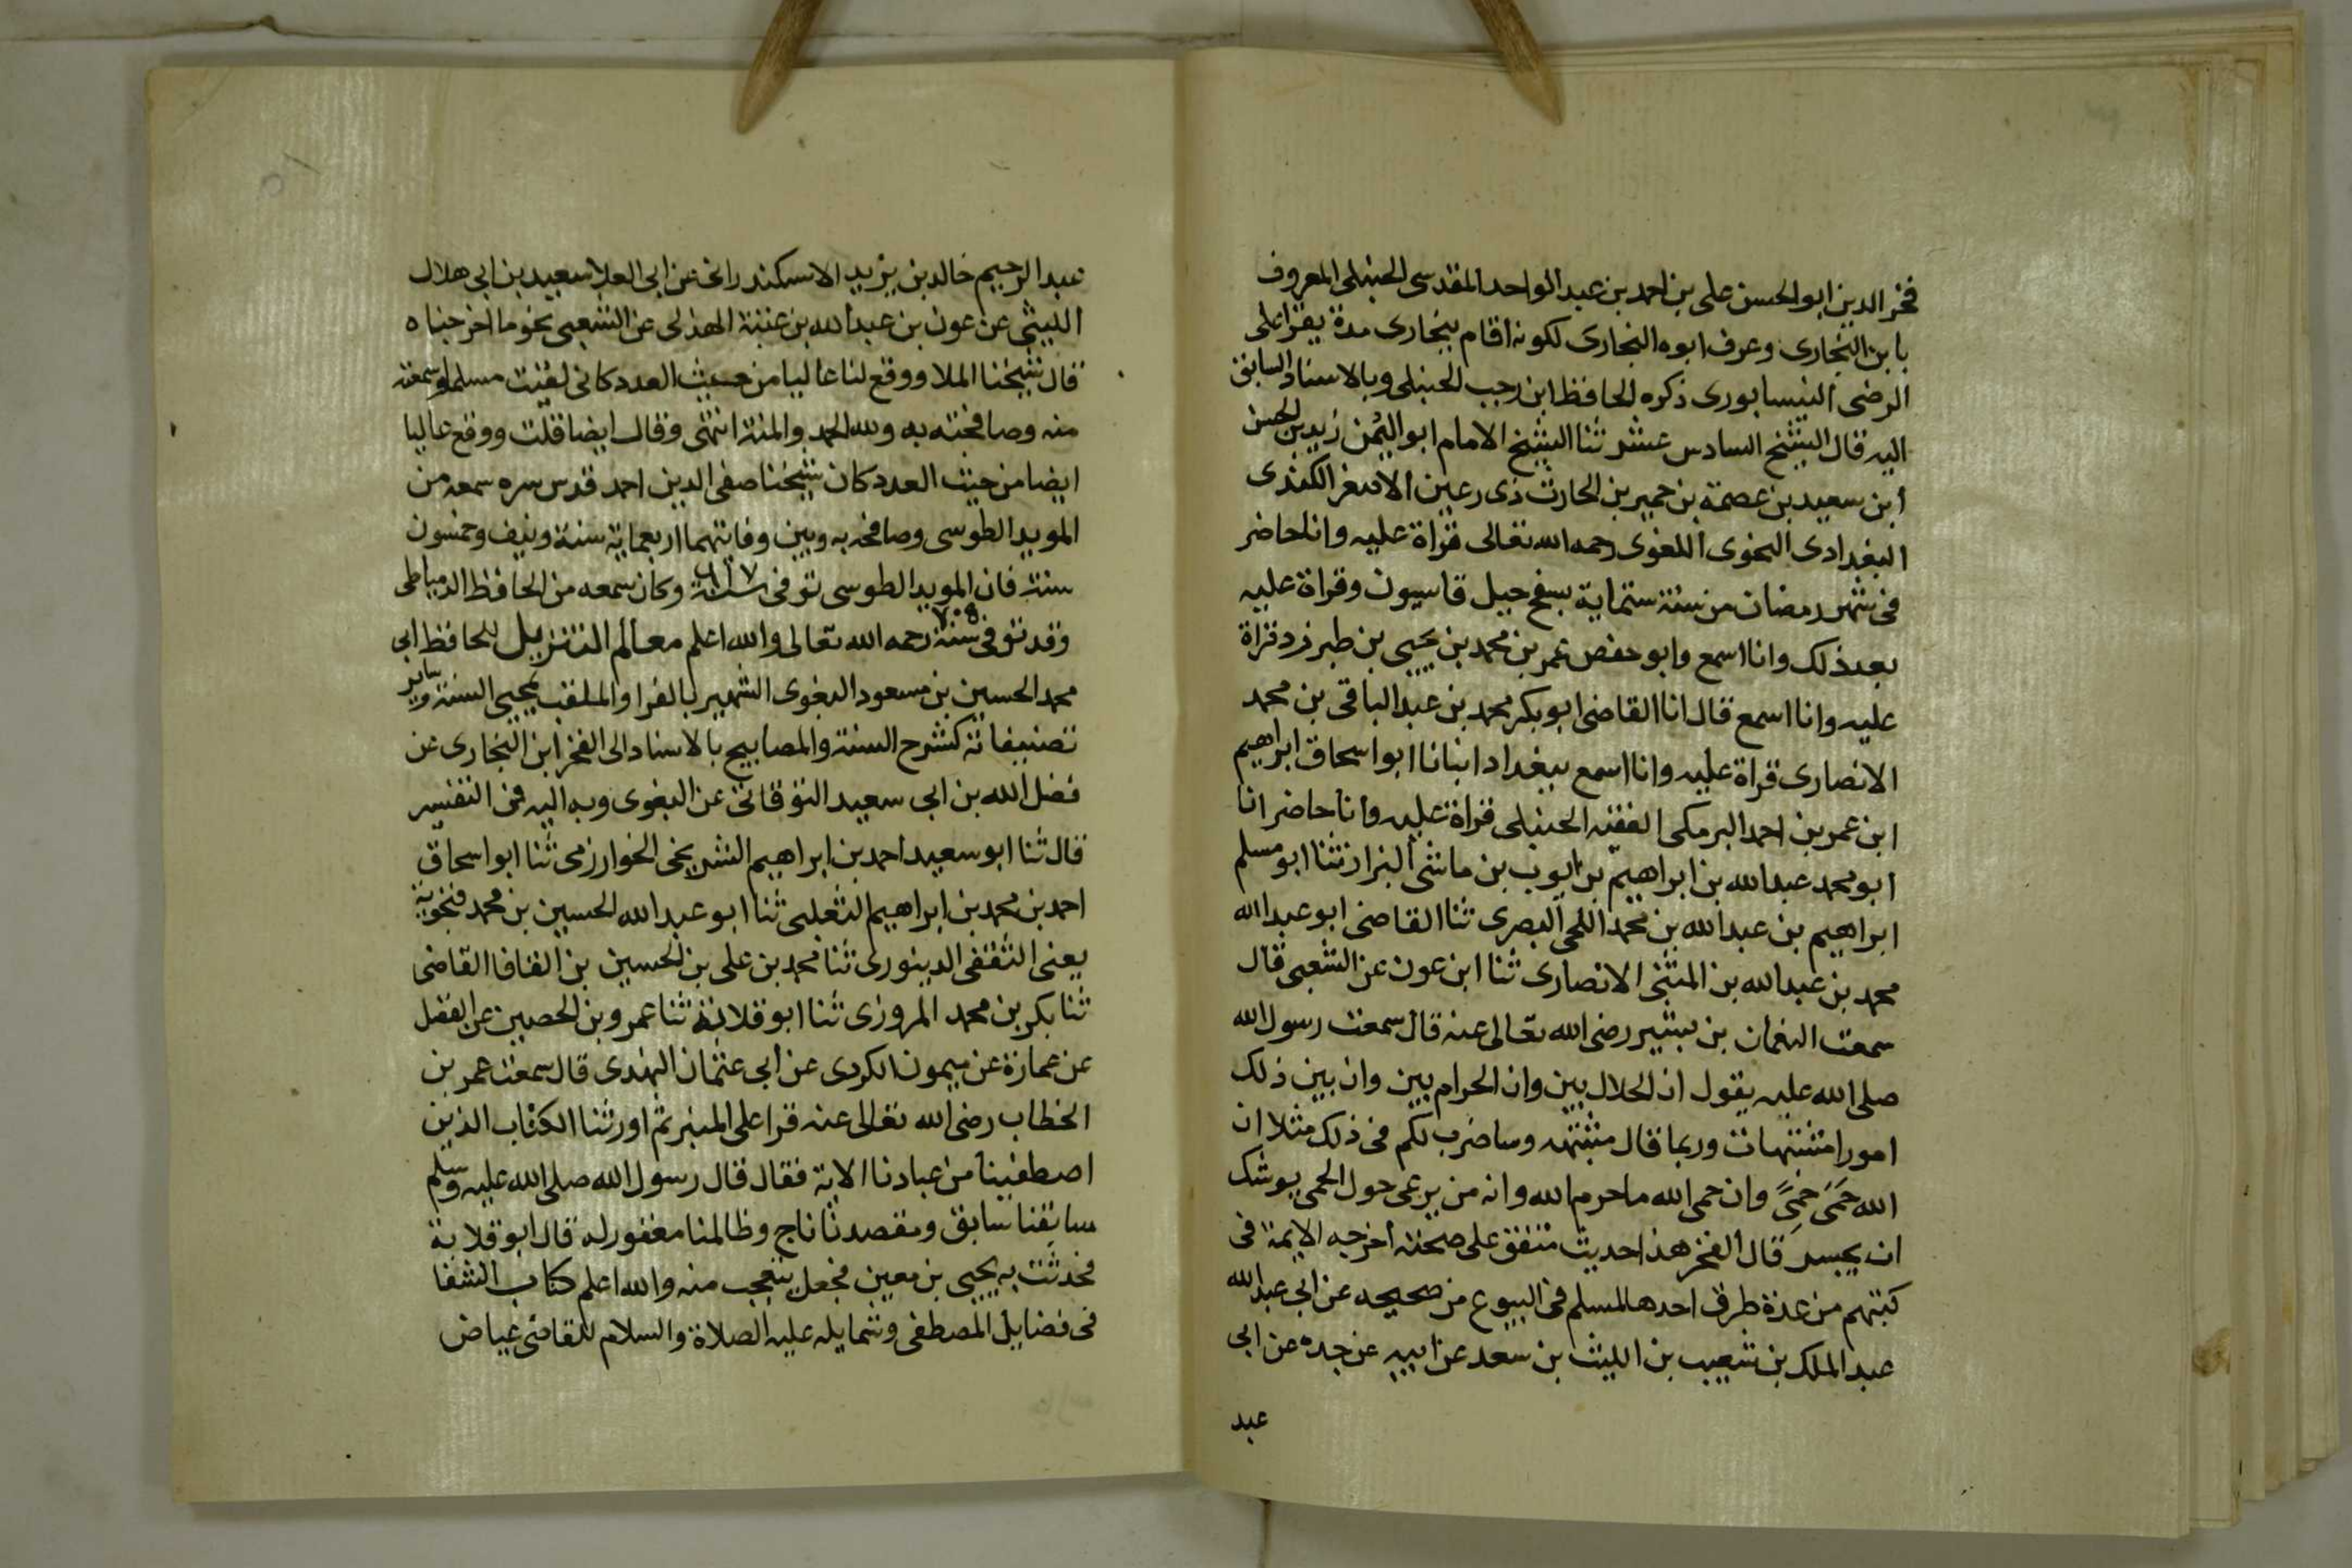 فخر الدين ابو الحسن على بن احمد بن عبد الواحد المقدسى الحنبلى المعروف
بابن البخارى وعرف ابوه البخارى لكونه اقام ببخارى مدة يقرا على
الرضى النيسابورى ذكره الحافظ ابن رجب الحنبلى وبالاسناد السابق
اليه قال الشيخ السادس عشر ثنا الشيخ الامام ابو اليُمن زيد بن الحسن
ابن سعيد بن عصمة بن حمير بن الحارث ذى رعين الاصغر الكندى
البغدادى النحوى اللغوى رحمه الله تعالى قراة عليه وانا حاضر
فى شهر رمضان من سنة ستماية بسفح جبل قاسيون وقراة عليه
بعد ذلك وانا اسمع وابو حفص عمر بن محمد بن يحيى بن طبرزد قراة
عليه وانا اسمع قال انا القاضى ابو بكر محمد بن عبد الباقى بن محمد
الانصارى قراة عليه وانا اسمع ببغداد انبانا ابو اسحاق ابراهيم
ابن عمر بن احمد البرمكى الفقيه الحنبلى قراة عليه وانا حاضر انا
ابو محمد عبد الله بن ابراهيم بن ايوب بن ماشى البزار ثنا ابو مسلم
ابراهيم بن عبد الله بن محمد اللجى البصرى ثنا القاضى ابو عبد الله
محمد بن عبد الله بن المثنى الانصارى ثنا ابن عون عن الشعبى قال
سمعت النعمان بن بشير رضى الله تعالى عنه قال سمعت رسول الله
صلى الله عليه يقول ان الحلال بين وان الحرام بين وان بين ذلك
امورا مشتبهات وربما قال مشتبهه وساضرب لكم فى ذلك مثلا ان
الله حَمَى حِمًى وان حمى الله ما حرم الله وانه من يرعى حول الحمى يوشك
ان يجسر قال الفخر هذا حديث متفق على صحته أخرجه الايمة فى
كتبهم من عدة طرق احدها لمسلم فى البيوع من صحيحه عن ابى عبد الله
عبد الملك بن شعيب بن الليث بن سعد عن ابيه عن جده عن ابى
عبد
عبد الرحيم خالد بن يزيد الاسكندرانى عن ابى العلا سعيد بن ابى هلال
الليثى عن عون بن عبد الله بن عتبة الهذلى عن الشعبى بنحو ما اخرجناه
قال شيخنا الملا ووقع لنا عاليا من حيث العدد كانى لقيت مسلما وسمعته
منه وصافحته به ولله الحمد والمنة انتهى وقال ايضا قلت ووقع عاليا
ايضا من حيث العدد كان شيخنا صفى الدين احمد قدس سره سمعه من
المويد الطوسى وصافحه به وبين وفاتهما اربعماية سنة ونيف وخمسون
سنة فان المويد الطوسى توفى سنة ٦١٧ وكان سمعه من الحافظ الدمياطى
وقد توفى سنة ٧٠٥ رحمه الله تعالى والله اعلم معالم التنزيل للحافظ ابى
محمد الحسين بن مسعود البغوى الشهير بالفرا والملقب بمحيى السنة وساير
تصنيفاته كشرح السنة والمصابيح بالاسناد الى الفخر ابن البخارى عن
فضل الله بن ابى سعيد النوقانى عن البغوى وبه اليه فى التفسير
قال ثنا ابو سعيد احمد بن ابراهيم الشريحى الخوارزمى ثنا ابو اسحاق
احمد بن محمد بن ابراهيم الثعلبى ثنا ابو عبد الله الحسين بن محمد فنجوية
يعنى الثقفى الدينورى ثنا محمد بن على بن الحسين بن الفافا القاضى
ثنا بكر بن محمد المروزى ثنا ابو قلابة ثنا عمرو بن الحصين عن الفضل
عن عمارة عن ميمون الكردى عن أبى عثمان النهدى قال سمعت عمر بن
الخطاب رضى الله تعالى عنه قرا على المنبر ثم اورثنا الكتاب الذين
اصطفينا من عبادنا الاية فقال قال رسول الله صلى الله عليه وسلم
سابقنا سابق ومقصدنا ناج وظالمنا مغفور له قال ابو قلابة
فحدثت به يحيى بن معين فجعل يتعجب منه والله اعلم كتاب الشفا
فى فضايل المصطفى وشمايله عليه الصلاة والسلام للقاضى عياض